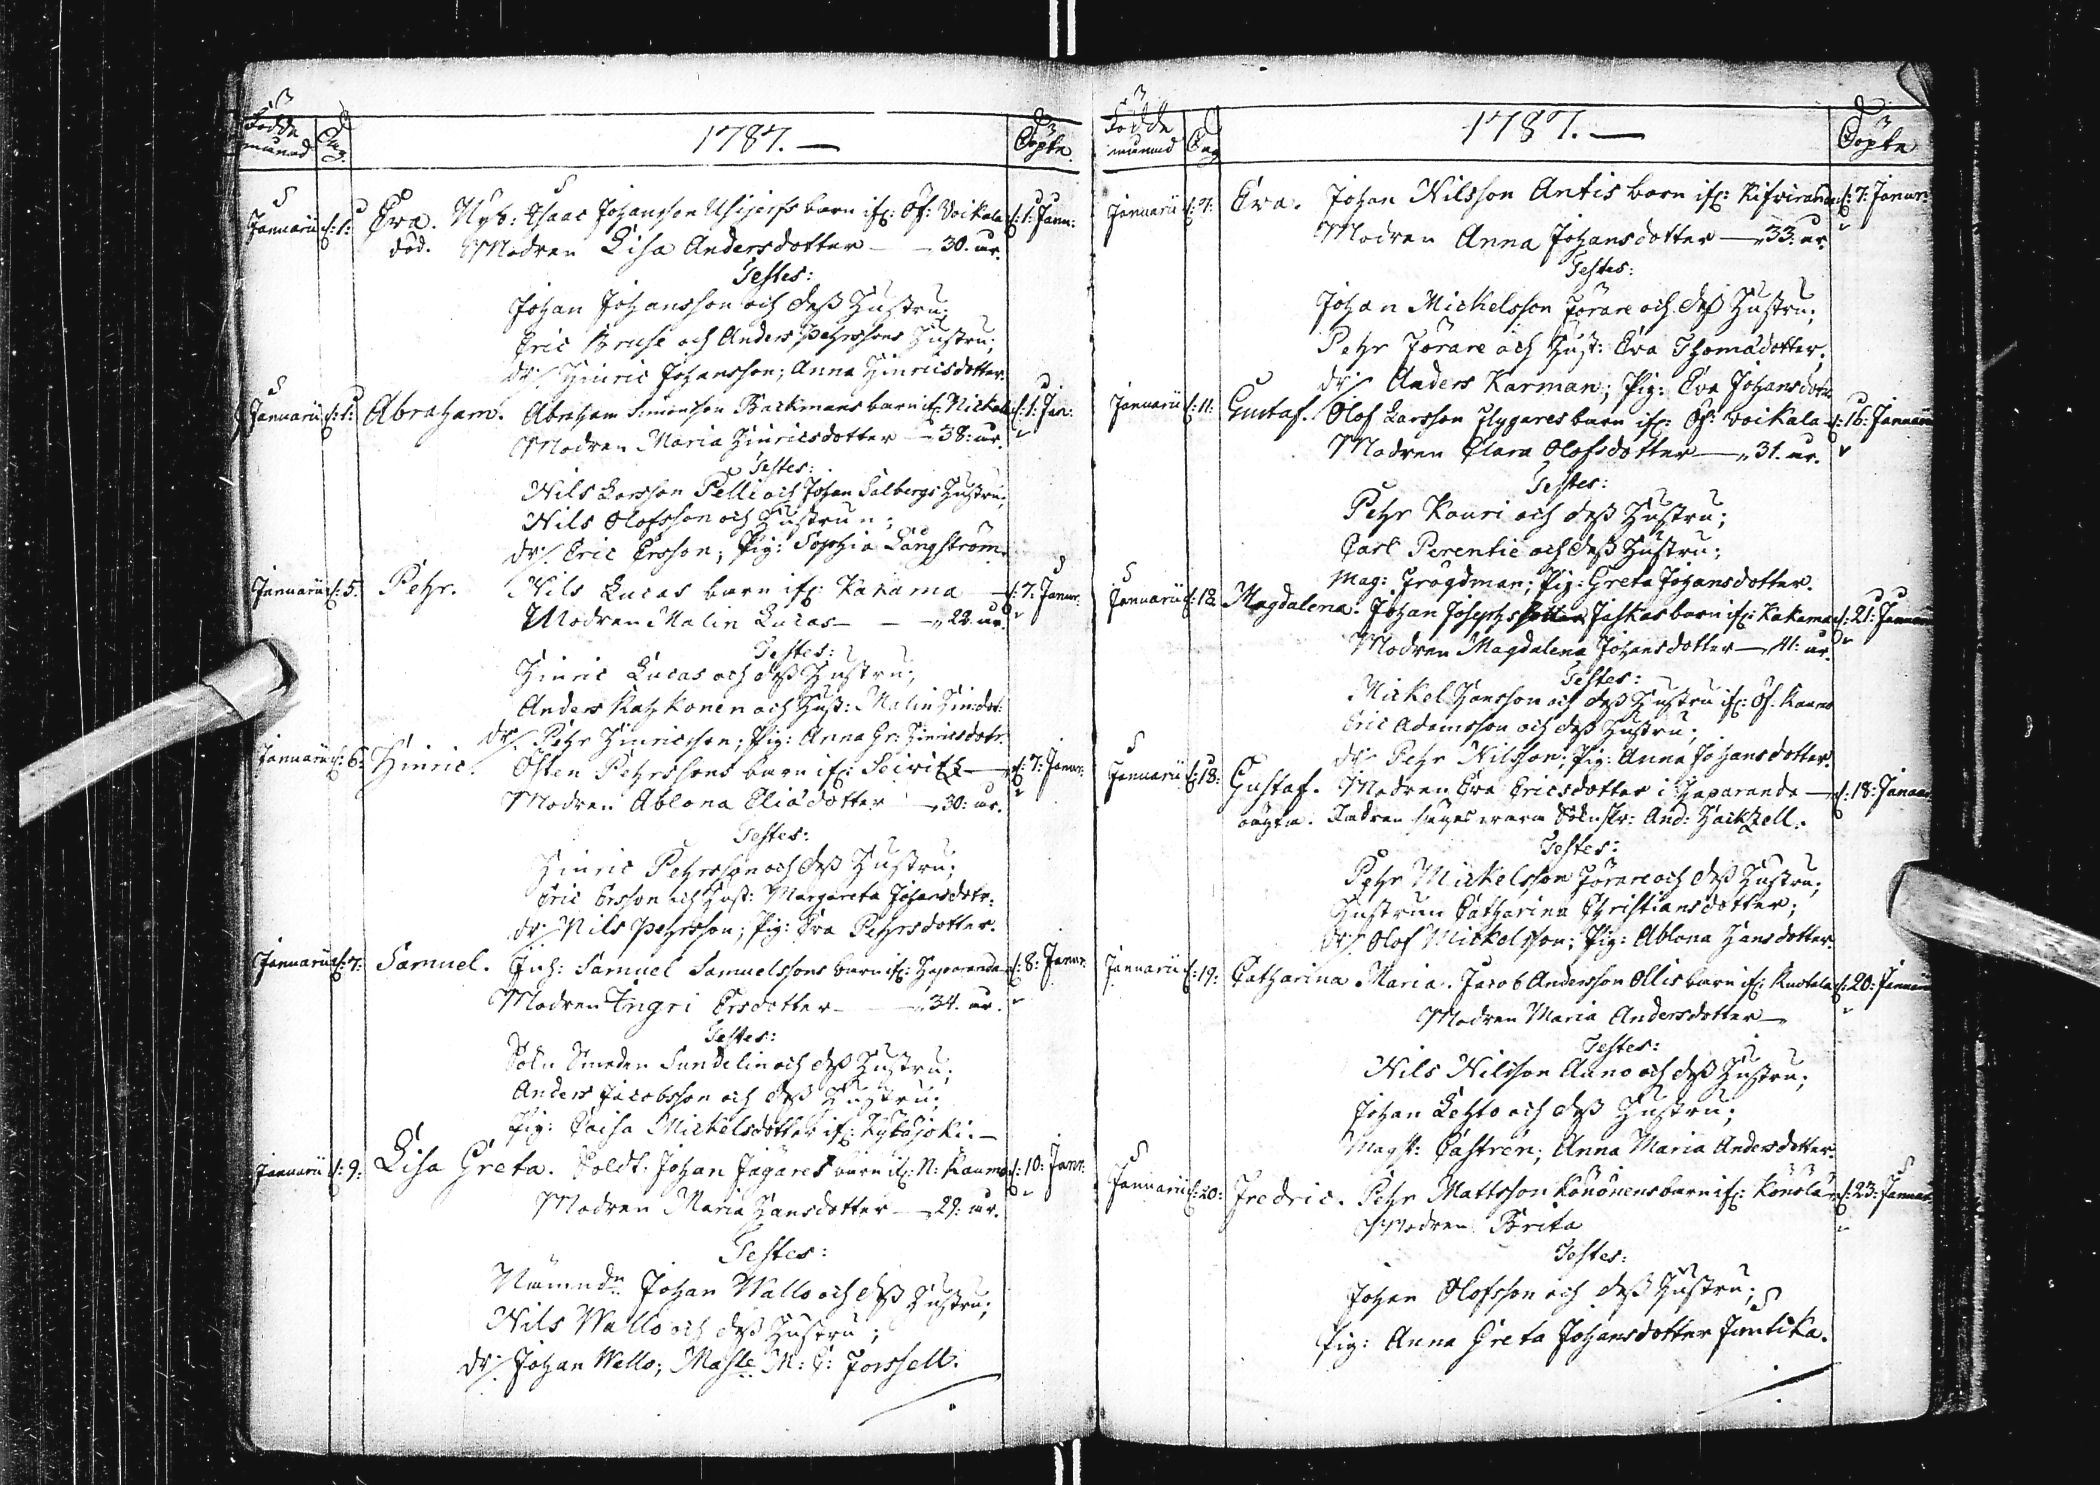 Födde
månad Dag. 1787. — Döpte
Januarii d: 1: Eva. Nyb: Isaac Johansson barn if: Öf: Voikala d: 1: Janu:
död. Modren Lisa Andersdotter — 30. år.
Testes:
Johan Johansson och dess Hustru;
Eric Kruse och Anders Pehrssons Hustru;
dr: Hinric Johansson; Anna Hinricsdotter.
Januarii d: 1: Abraham. Abraham Simonsson Backmans barn if: Nickala d: 1: Jan:
Modren Maria Hinricsdotter — 38: år.
Testes:
Nils Larsson Pelli och Johan Salbergs Hustru;
Nils Olofsson och Hustrun;
dr: Eric Ersson; Pig: Sophia Långström.
Januarii d: 5. Pehr. Nils Lucas barn if: Kakama — d: 7: Janur:
Modren Malin Lucas — 22. år.
Testes:
Hinric Lucas och dess Hustru;
Anders och Hust: Malin Hindot:
dr: Pehr Hinricsson; Pig: Anna Gr: Hinricsdotr.
Januarii d: 6: Hinric. Östen Pehrssons barn if: Seivitz — d: 7: Janur:
Modren Ablona Eliädotter — 30: år.
Testes:
Hinric Pehrsson och dess Hustru;
Eric Ersson och Hust: Margareta Johansdotr:
dr: Nils Pehrsson; Pig: Eva Pehrsdotter.
Januarii d: 7: Samuel. Inh: Samuel Samuelssons barn if: Haparanda d: 8: Janur:
Modren Ingri Ersdotter — 34. år.
Testes:
Sokn Smeden Sundelin och dess Hustru;
Anders Jacobsson och dess Hustru;
Pig: Caisa Mickelsdotter if: Kyläjoki. —
Januarii d: 9: Lisa Greta. Soldt: Johan Jägares barn if: N: Raumo d: 10: Janr:
Modren Maria Hansdotter — 29: år.
Testes:
Nämndn Johan Wallo och dess Hustru;
Nils Wallo och dess Hustru;
dr: Johan Wallo; Masle M: C: Forssell.
Födde
månad Dag 1787. — Döpte
Januarii d: 7: Eva. Johan Nilsson Antis barn if: Kifviranda d: 7: Janur:
Modren Anna Johansdotter — 33: år.
Testes:
Johan Mickelsson Förare och dess Hustru;
Pehr Förare och Hust: Eva Thomädotter.
dr: Anders Karman; Pig: Eva Johansdotr
Januarii d: 11: Gustaf. Olof Larsson Nygares barn if: Öf: Voikala d: 16: Januarii
Modren Clara Olofsdotter — 31. år.
Testes:
Pehr Kauri och dess Hustru;
Carl Perentie och dess Hustru;
Mag: Frögdman; Pig: Greta Johansdotter.
Januarii d: 12. Magdalena. Johan Josephsson Jaskas barn if: Kakama d: 21: Januarii
Modren Magdalena Johansdotter — 41: år.
Testes:
Mickel Hansson och dess Hustru if: Öf: Raumo
Eric Adamsson och dess Hustru;
dr: Pehr Nilsson; Pig: Anna Johansdotter.
Januarii d: 18: Gustaf. Modren Eva Ericsdotter i Haparanda — d: 18: Januarii
oägta. Fadren säges vara Sokn Skr: And: Hackzell.
Testes:
Pehr Mickelsson Förare och dess Hustru;
Hustrun Catharina Christiansdotter;
dr: Olof Mickelsson; Pig: Ablona Hansdotter
Januarii d: 19: Catharina Maria. Jacob Andersson Ollis barn if: d: 20: Januarii
Modren Maria Andersdotter —
Testes:
Nils Nilsson Auno och dess Hustru;
Johan Lehto och dess Hustru;
Magst: Castren; Anna Maria Andersdotter.
Januarii d: 20: Fredric. Pehr Mattsson Könönens barn if: Könölä d: 23: Januar:
Modren Brita
Testes:
Johan Olofsson och dess Hustru;
Pig: Anna Greta Johansdotter Funtika.